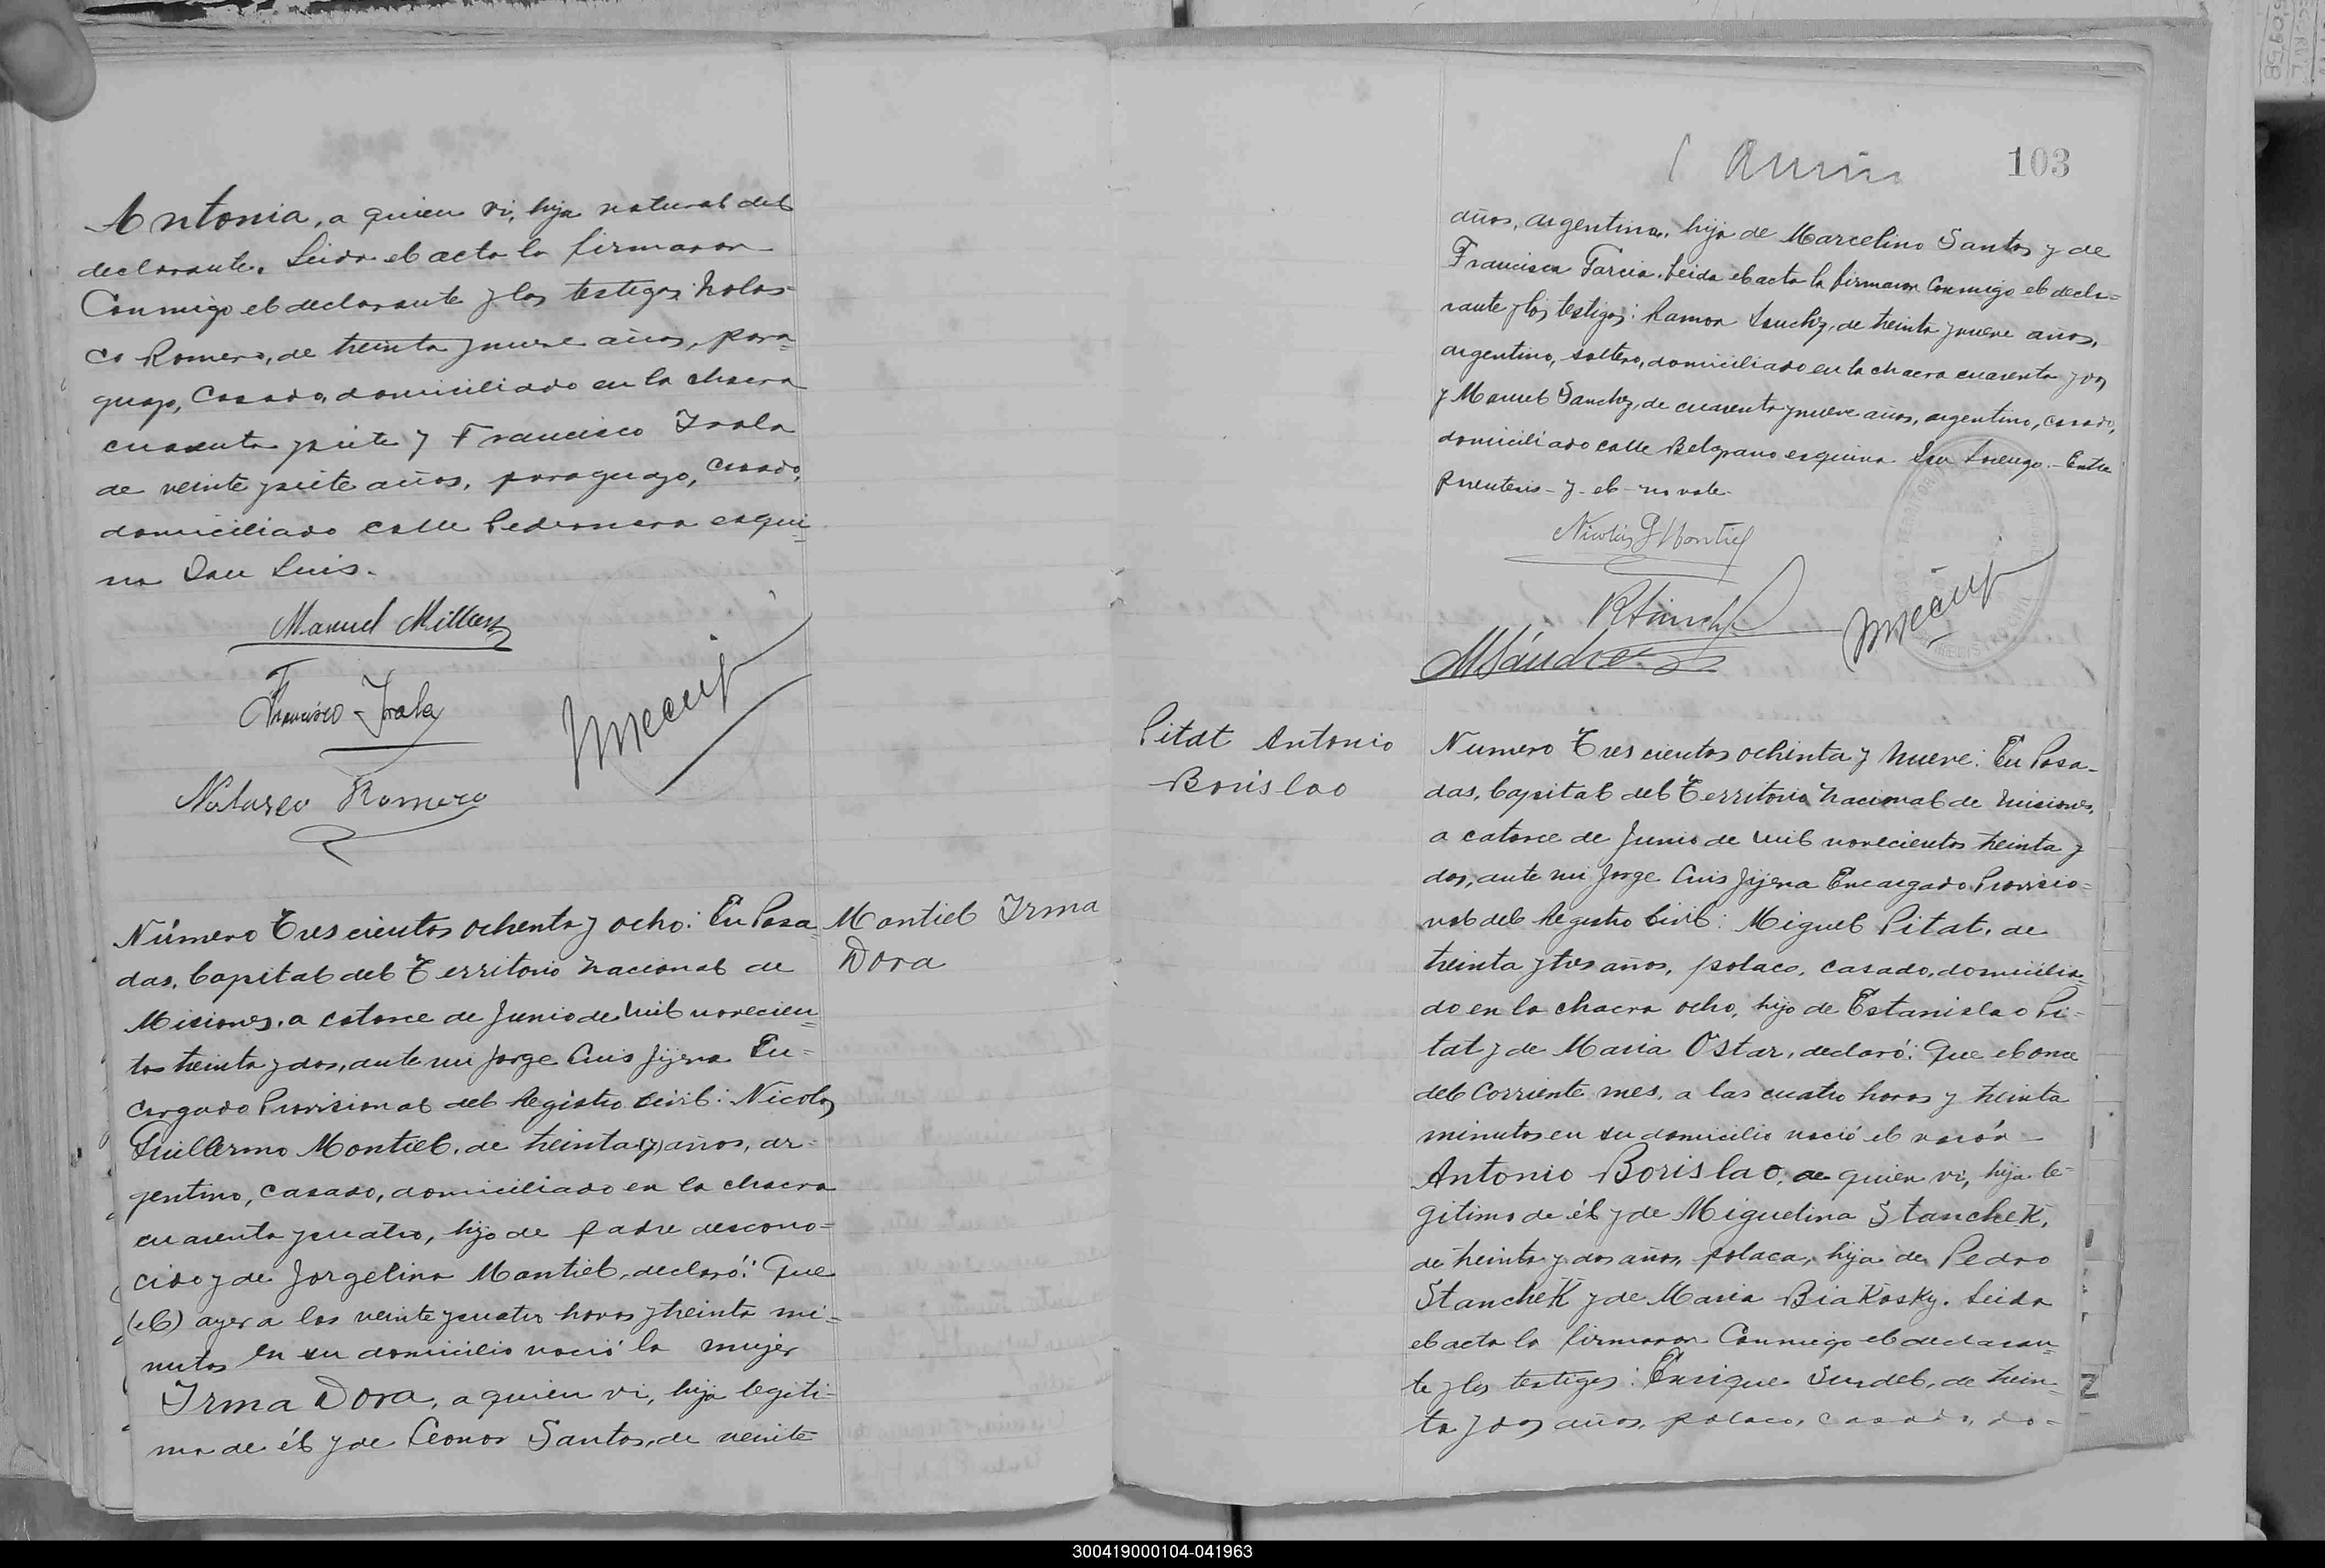 Antonia, a quien vi, hija natural del
declarante. Leida el acta la firmaron
Conmigo el declarante y los testigos: Nolas-
co Romero, de treinta y nueve años, para-
guayo, Casado, domiciliado en la chacra
cuarenta y siete y Francisco Irala
de veinte y siete años, paraguayo, casado,
domiciliado calle Pedernera esqui-
na San Luis.
Manuel Millan
Francisco Irala
Nolasco Romero
Número Trescientos ochenta y ocho: En Posa-
das, Capital del Territorio Nacional de
Misiones, a catorce de Junio de mil novecien-
tos treinta y dos, ante mi Jorge Luis Jijena En-
cargado Provisional del Registro Civil: Nicolas
Guillermo Montiel, de treinta (y) años, ar-
gentino, casado, domiciliado en la chacra
cuarenta y cuatro, hijo de padre descono-
cido y de Jorgelina Montiel, declaró: Que
(el) ayer a las veinte y cuatro horas y treinta mi-
nutos en su domicilio nació la mujer
Irma Dora, a quien vi, hija legiti-
ma de él y de Leonor Santos, de veinte
Montiel Irma
Dora
103
años, argentina, hija de Marcelino Santos y de
Francisca Garcia. Leida el acta la firmaron Conmigo el decla-
rante y los testigos: Ramon Sanchez, de treinta y nueve años,
argentino, soltero, domiciliado en la chacra cuarenta y dos
y Manuel Sanchez, de cuarenta y nueve años, argentino, casado,
domiciliado calle Belgrano esquina San Lorenzo.- Entre
parentesis - y - el - no vale.
Nicolás G Montiel
R Sanchez
M Sánchez
Pitat Antonio
Borislao
Numero Trescientos ochenta y nueve: En Posa-
das, Capital del Territorio Nacional de Misiones,
a catorce de Junio de mil novecientos treinta y
dos, ante mi Jorge Luis Jijena Encargado Provisio-
nal del Registro Civil: Miguel Pitat, de
treinta y tres años, polaco, casado, domicilia-
do en la chacra ocho, hijo de Estanislao Pi-
tat y de Maria Ostar, declaró: Que el once
del Corriente mes, a las cuatro horas y treinta
minutos en su domicilio nació el varón
Antonio Borislao, a quien vi, hijo le-
gitimo de él y de Miguelina Stanchek,
de treinta y dos años, polaca, hija de Pedro
Stanchek y de Maria Biakosky. Leida
el acta la firmaron Conmigo el declaran-
te y los testigos: Enrique Surdel, de trein-
ta y dos años, polaco, casado, do-
300419000104-041963